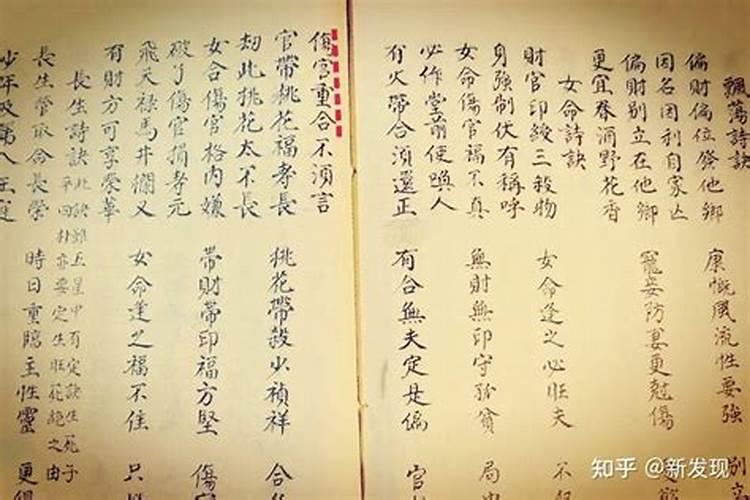 飄蕩詩訣
偏財偏位發他鄉 慷慨風流性要強 別立
因名因利自家亾
偏財別立在他鄉 寵妾防妻更尅傷
更宜春酒野花香
女命詩訣
財官印綬三般物 女命逢之必旺夫 不
身強制伏有稱呼
女命傷官福不真 無財無印守孤貧 局
必作堂前使喚人
有夫帶合須還正 有合無夫定是偏 官
傷官重合不須言
官帶桃花福壽長 桃花帶殺少禎祥 合
劫此桃花太不長
女命傷官格內嫌 帶財帶印福方堅 傷
破了傷官損壽元
飛天祿馬井欄叉 女命逢之福不佳 只
有財方可享榮華
長生詩訣 此訣雖五星中有定訣生死子
平四柱亦要定生旺死絕之由
長生管取命長榮 時日重臨主性靈 更得
少年及第入王庭
知乎 @新发现